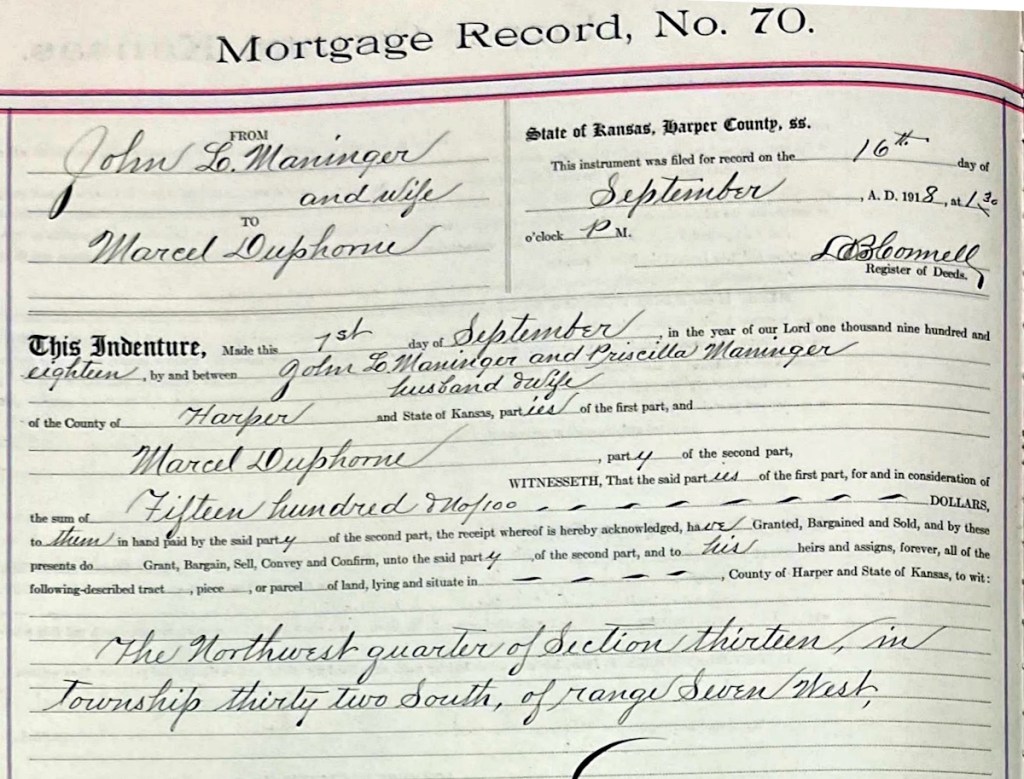 Mortgage Record, No. 70.
FROM
John L. Maninger
and wife
TO
Marcel Duphorne
State of Kansas, Harper County, ss.
This instrument was filed for record on the 16th day of
September, A. D. 1918, at 1 30
o'clock P M.
L B Connell
Register of Deeds.
This Indenture, Made this 1st day of September, in the year of our Lord one thousand nine hundred and
eighteen, by and between John L Maninger and Priscilla Maninger
husband & wife
of the County of Harper and State of Kansas, parties of the first part, and
Marcel Duphorne, party of the second part,
WITNESSETH, That the said parties of the first part, for and in consideration of
the sum of Fifteen hundred & no/100 DOLLARS,
to them in hand paid by the said party of the second part, the receipt whereof is hereby acknowledged, have Granted, Bargained and Sold, and by these
presents do Grant, Bargain, Sell, Convey and Confirm, unto the said party of the second part, and to his heirs and assigns, forever, all of the
following-described tract, piece, or parcel of land, lying and situate in, County of Harper and State of Kansas, to wit:
The Northwest quarter of Section thirteen, in
Township thirty two South, of range Seven West,